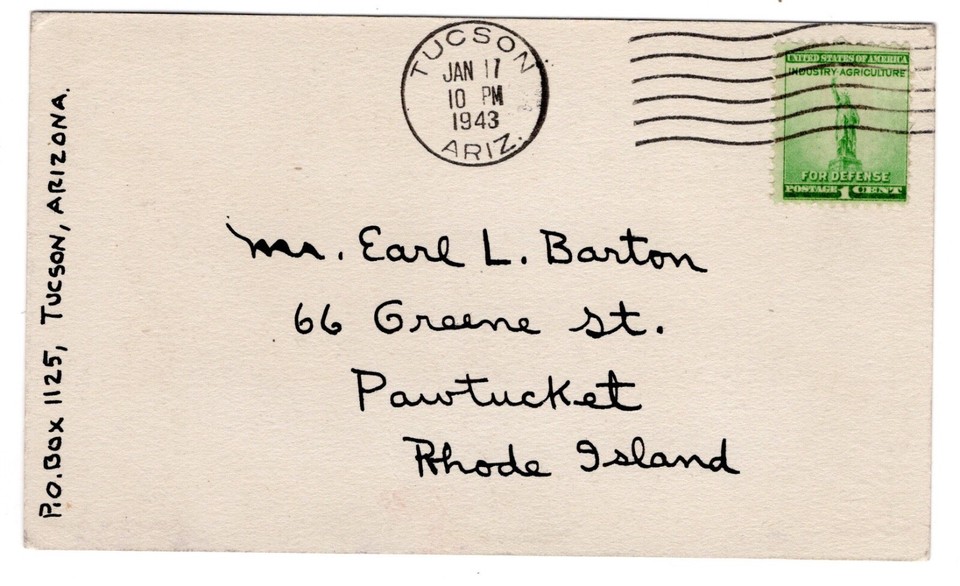 TUCSON
JAN 17
10 PM
1943
ARIZ.
UNITED STATES OF AMERICA
INDUSTRY AGRICULTURE
FOR DEFENSE
POSTAGE 1 CENT
Mr. Earl L. Barton
66 Greene St.
Pawtucket
Rhode Island
P.O. BOX 1125, TUCSON, ARIZONA.